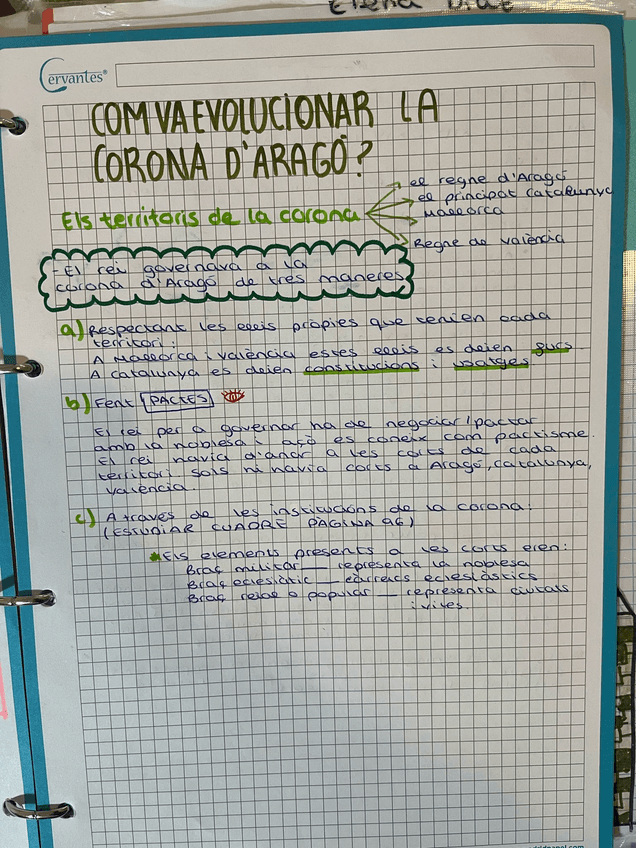 Elena Díaz
Cervantes®
COM VA EVOLUCIONAR LA
CORONA D'ARAGÓ?
Els territoris de la corona
el regne d'Aragó
el principat Catalunya
Mallorca
Regne de València
- El rei governava a la
corona d'Aragó de tres maneres
a) Respectant les lleis pròpies que tenien cada
territori:
A Mallorca i València estes lleis es deien furs
A Catalunya es deien constitucions i usatges
b) Fent PACTES
El rei per a governar ha de negociar/pactar
amb la noblesa i açò es coneix com pactisme.
El rei havia d'anar a les corts de cada
territori sols hi havia corts a Aragó, Catalunya,
València.
c) A través de les institucións de la corona:
(ESTUDIAR CUADRE PÀGINA 96)
Els elements presents a les corts eren:
Braç militar — representa la noblesa
Braç eclesiàtic — càrrecs eclesiàstics
Braç reial o popular — representa ciutats
i viles.